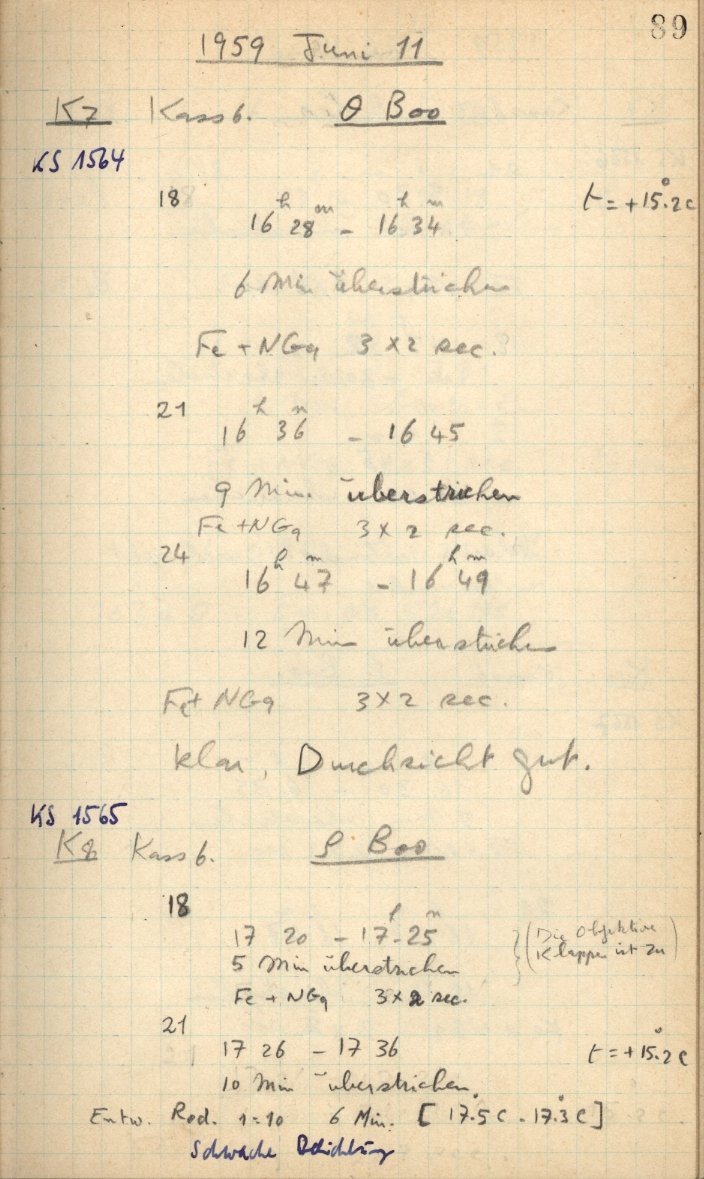 89
1959 Juni 11
K7 Kass 6. θ Boo
KS 1564
18 16h 28m - 16h 34m t = +15.°2 C
6 Min überstrichen
Fe + NGq 3 x 2 sec.
21 16h 36m - 16 45
9 Min. überstrichen
Fe + NGq 3 x 2 sec.
24 16h 47m - 16h 49m
12 Min überstrichen
Fe + NGq 3 x 2 sec.
klar, Durchsicht gut.
KS 1565
K8 Kass 6. ρ Boo
18
17 20 - 17h 25m (Die Objektive
5 Min überstrichen Klappe ist zu)
Fe + NGq 3 x 2 sec.
21
17 26 - 17 36 t = +15.°2 C
10 Min überstrichen.
Entw. Rod. 1=10 6 Min. [17.°5 C - 17.°3 C]
Schwache